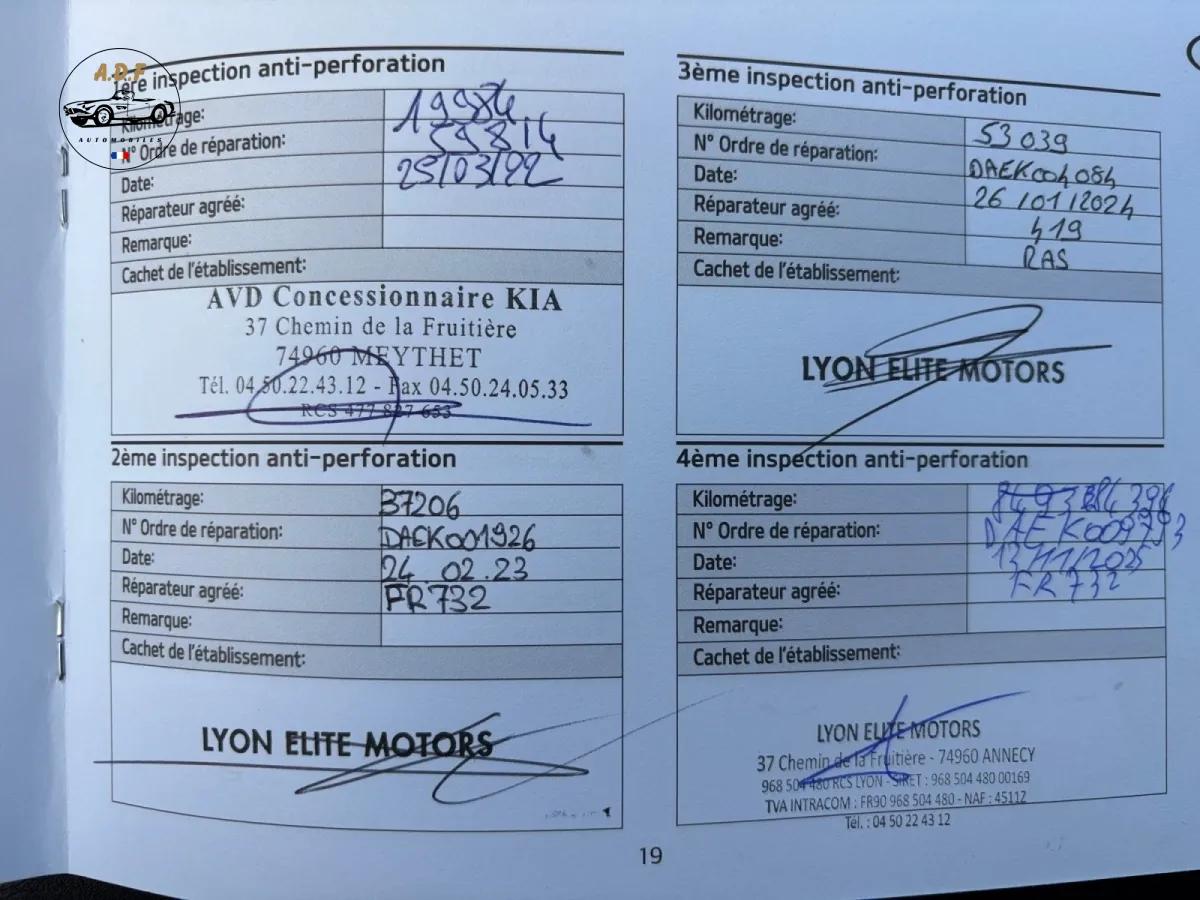 A.D.F
AUTOMOBILES
1ère inspection anti-perforation
Kilométrage: 19984
N° Ordre de réparation: 59814
Date: 25/03/22
Réparateur agréé:
Remarque:
Cachet de l'établissement:
AVD Concessionnaire KIA
37 Chemin de la Fruitière
74960 MEYTHET
Tél. 04.50.22.43.12 - Fax 04.50.24.05.33
RCS 477 827 653
2ème inspection anti-perforation
Kilométrage: 37206
N° Ordre de réparation: DAEK001926
Date: 24.02.23
Réparateur agréé: FR732
Remarque:
Cachet de l'établissement:
LYON ELITE MOTORS
3ème inspection anti-perforation
Kilométrage: 53039
N° Ordre de réparation: DAEK004084
Date: 26/01/2024
Réparateur agréé: 419
Remarque: RAS
Cachet de l'établissement:
LYON ELITE MOTORS
4ème inspection anti-perforation
Kilométrage: 84396
N° Ordre de réparation:
Date: 13/11/2025
Réparateur agréé: FR732
Remarque:
Cachet de l'établissement:
LYON ELITE MOTORS
37 Chemin de la Fruitière - 74960 ANNECY
968 504 480 RCS LYON - SIRET : 968 504 480 00169
TVA INTRACOM : FR90 968 504 480 - NAF : 4511Z
Tél. : 04 50 22 43 12
19